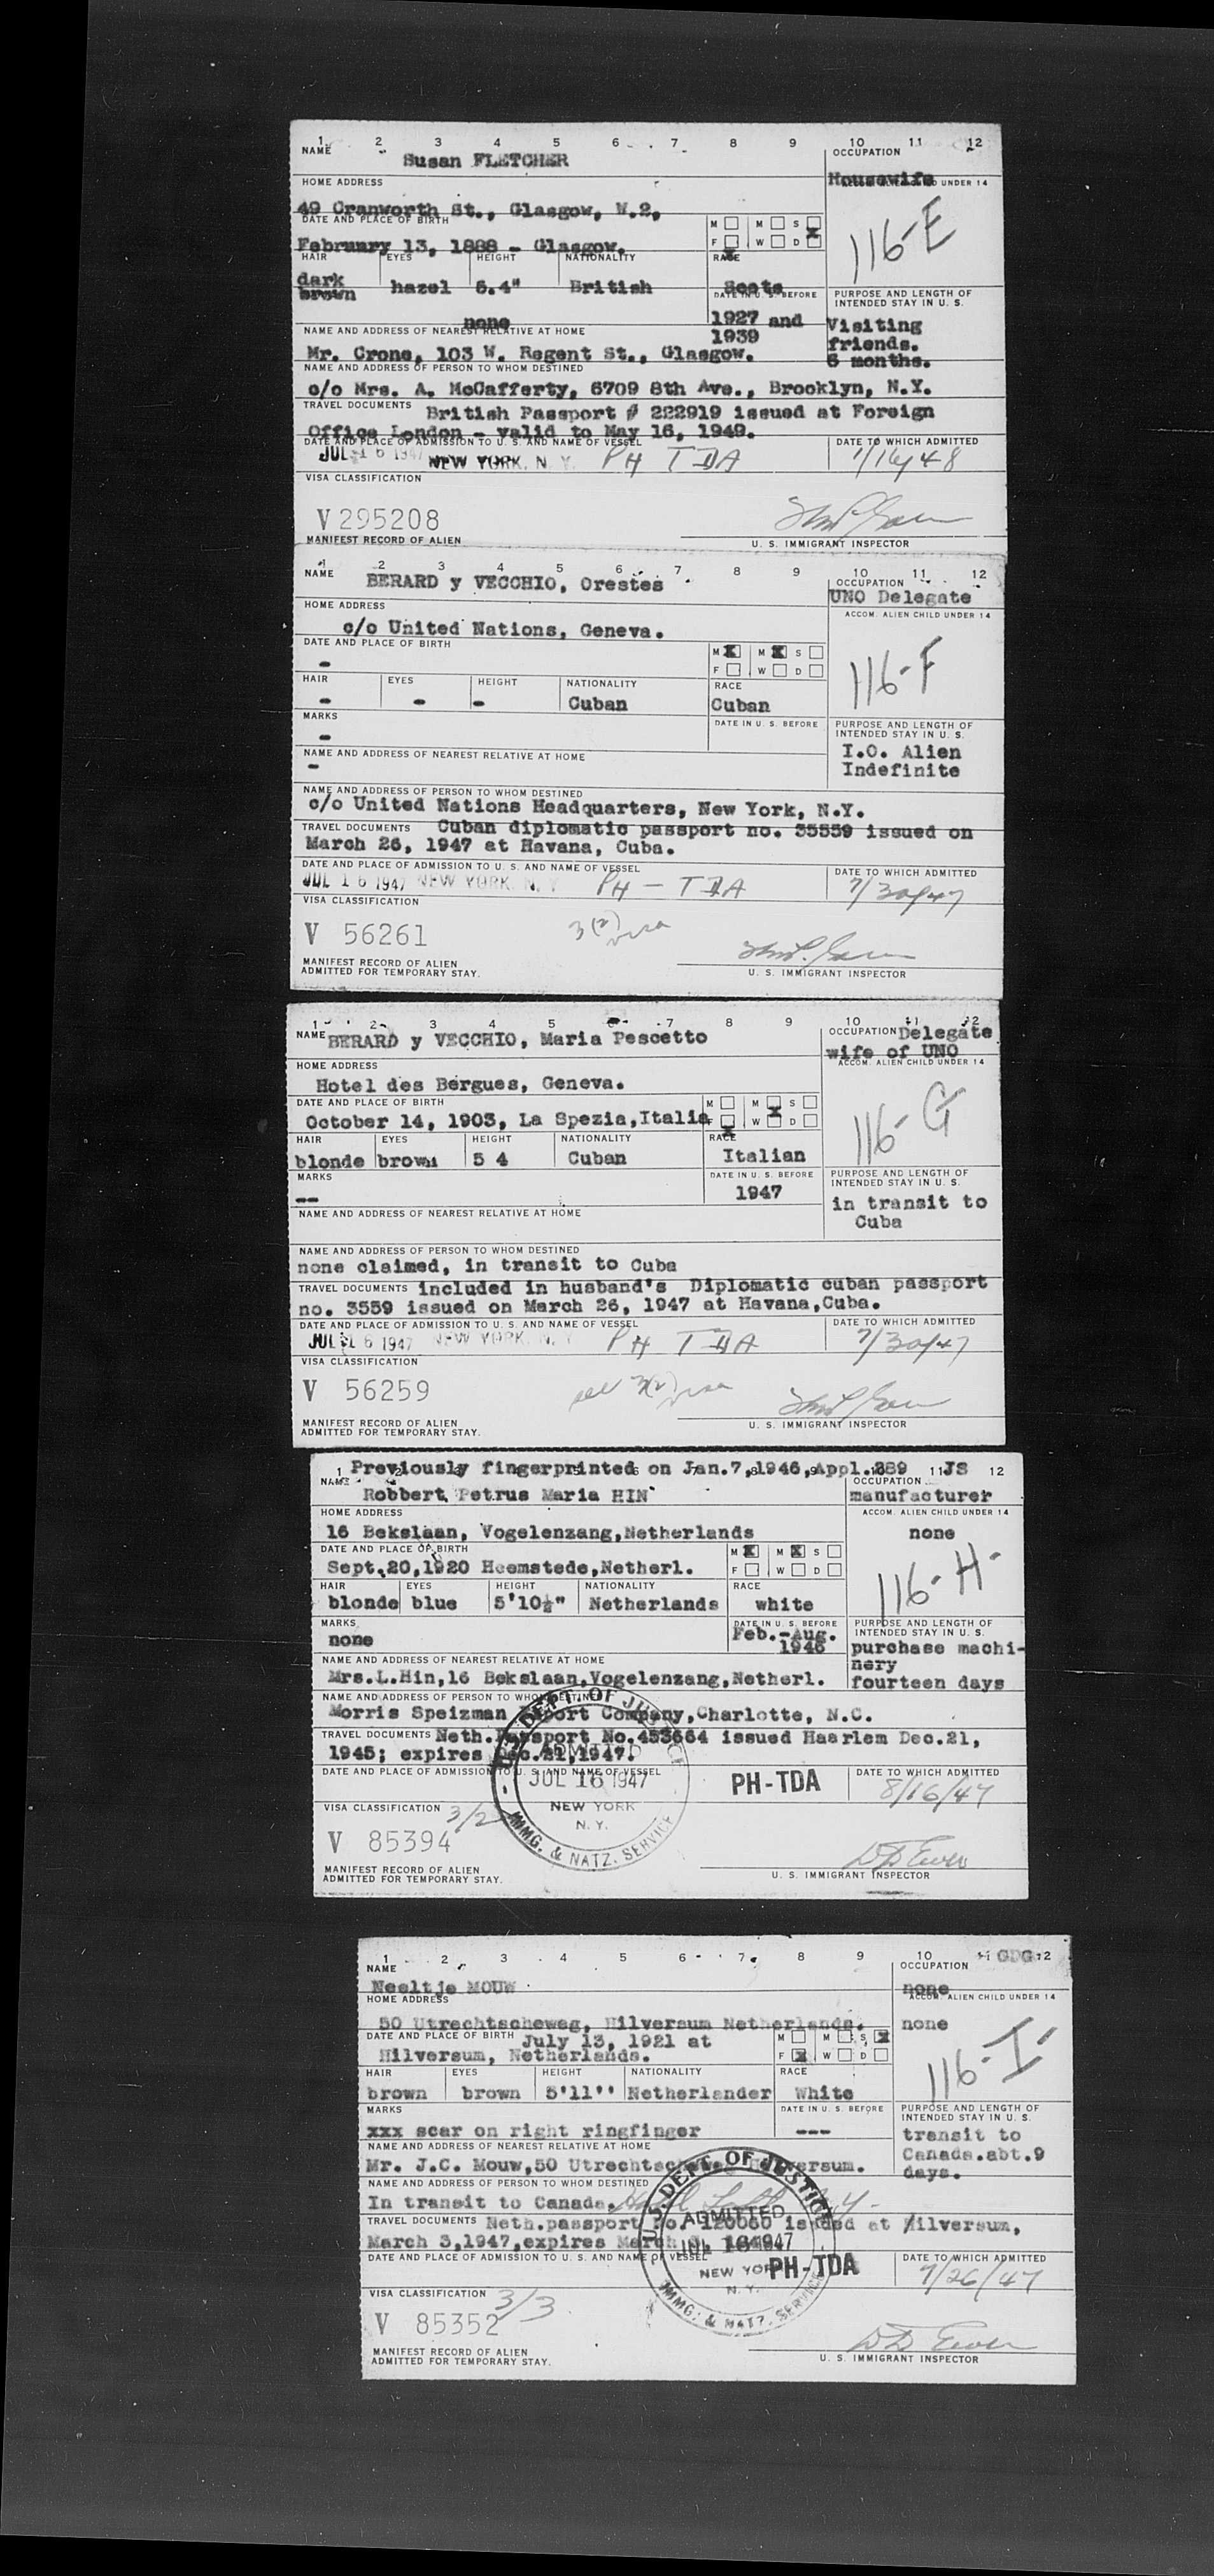 1 2 3 4 5 6 7 8 9 10 11 12
NAME Susan FLETCHER OCCUPATION
HOME ADDRESS Housewife UNDER 14
49 Cranworth St., Glasgow, W.2,
DATE AND PLACE OF BIRTH M M S
February 13, 1888 - Glasgow. F W D 116-E
HAIR EYES HEIGHT NATIONALITY RACE
dark brown hazel 5.4" British Scots
DATE IN U. S. BEFORE PURPOSE AND LENGTH OF INTENDED STAY IN U. S.
none 1927 and 1939 Visiting friends. 6 months.
NAME AND ADDRESS OF NEAREST RELATIVE AT HOME
Mr. Crone, 103 W. Regent St., Glasgow.
NAME AND ADDRESS OF PERSON TO WHOM DESTINED
c/o Mrs. A. McCafferty, 6709 8th Ave., Brooklyn, N.Y.
TRAVEL DOCUMENTS British Passport # 222919 issued at Foreign
Office London - valid to May 16, 1949.
DATE AND PLACE OF ADMISSION TO U. S. AND NAME OF VESSEL DATE TO WHICH ADMITTED
JUL 16 1947 NEW YORK. N. Y. PH TDA 1/16/48
VISA CLASSIFICATION
V 295208
MANIFEST RECORD OF ALIEN U. S. IMMIGRANT INSPECTOR
1 2 3 4 5 6 7 8 9 10 11 12
NAME BERARD y VECCHIO, Orestes OCCUPATION
UNO Delegate
HOME ADDRESS ACCOM. ALIEN CHILD UNDER 14
c/o United Nations, Geneva.
DATE AND PLACE OF BIRTH M X M X S
- F W D 116-F
HAIR EYES HEIGHT NATIONALITY RACE
- - - Cuban Cuban
MARKS DATE IN U. S. BEFORE PURPOSE AND LENGTH OF INTENDED STAY IN U. S.
- I.O. Alien
NAME AND ADDRESS OF NEAREST RELATIVE AT HOME Indefinite
-
NAME AND ADDRESS OF PERSON TO WHOM DESTINED
c/o United Nations Headquarters, New York, N.Y.
TRAVEL DOCUMENTS Cuban diplomatic passport no. 35559 issued on
March 26, 1947 at Havana, Cuba.
DATE AND PLACE OF ADMISSION TO U. S. AND NAME OF VESSEL DATE TO WHICH ADMITTED
JUL 16 1947 NEW YORK. N. Y. PH - TDA 7/30/47
VISA CLASSIFICATION
V 56261 3(2) visa
MANIFEST RECORD OF ALIEN
ADMITTED FOR TEMPORARY STAY. U. S. IMMIGRANT INSPECTOR
1 2 3 4 5 6 7 8 9 10 11 12
NAME BERARD y VECCHIO, Maria Pescetto OCCUPATION Delegate
wife of UNO
HOME ADDRESS ACCOM. ALIEN CHILD UNDER 14
Hotel des Bergues, Geneva.
DATE AND PLACE OF BIRTH M M X S
October 14, 1903, La Spezia, Italia F X W D 116-G
HAIR EYES HEIGHT NATIONALITY RACE
blonde brown 5 4 Cuban Italian
MARKS DATE IN U. S. BEFORE PURPOSE AND LENGTH OF INTENDED STAY IN U. S.
-- 1947 in transit to
NAME AND ADDRESS OF NEAREST RELATIVE AT HOME Cuba
NAME AND ADDRESS OF PERSON TO WHOM DESTINED
none claimed, in transit to Cuba
TRAVEL DOCUMENTS included in husband's Diplomatic cuban passport
no. 3559 issued on March 26, 1947 at Havana,Cuba.
DATE AND PLACE OF ADMISSION TO U. S. AND NAME OF VESSEL DATE TO WHICH ADMITTED
JUL 16 1947 NEW YORK. N. Y. PH TDA 7/30/47
VISA CLASSIFICATION
V 56259 3(2) visa
MANIFEST RECORD OF ALIEN
ADMITTED FOR TEMPORARY STAY. U. S. IMMIGRANT INSPECTOR
Previously fingerprinted on Jan.7,1946,Appl.289 JS 12
NAME Robbert Petrus Maria HIN OCCUPATION
manufacturer
HOME ADDRESS ACCOM. ALIEN CHILD UNDER 14
16 Bekslaan, Vogelenzang,Netherlands none
DATE AND PLACE OF BIRTH M X M X S
Sept.20,1920 Heemstede,Netherl. F W D 116-H
HAIR EYES HEIGHT NATIONALITY RACE
blonde blue 5'10½" Netherlands white
MARKS DATE IN U. S. BEFORE PURPOSE AND LENGTH OF INTENDED STAY IN U. S.
none Feb.-Aug. 1946 purchase machinery
NAME AND ADDRESS OF NEAREST RELATIVE AT HOME
Mrs.L.Hin,16 Bekslaan,Vogelenzang,Netherl. fourteen days
NAME AND ADDRESS OF PERSON TO WHOM DESTINED
Morris Speizman Export Company,Charlotte, N.C.
TRAVEL DOCUMENTS Neth.Passport No.453664 issued Haarlem Dec.21,
1945; expires Dec.21,1947.
DATE AND PLACE OF ADMISSION TO U. S. AND NAME OF VESSEL DATE TO WHICH ADMITTED
U.S. DEPT. OF JUSTICE ADMITTED JUL 16 1947 NEW YORK N. Y. IMMG. & NATZ. SERVICE
PH-TDA 8/16/47
VISA CLASSIFICATION 3/2
V 85394
MANIFEST RECORD OF ALIEN
ADMITTED FOR TEMPORARY STAY. U. S. IMMIGRANT INSPECTOR
1 2 3 4 5 6 7 8 9 10 11 GDG 12
NAME OCCUPATION
Neeltje MOUW none
HOME ADDRESS ACCOM. ALIEN CHILD UNDER 14
50 Utrechtscheweg, Hilversum Netherlands. none
DATE AND PLACE OF BIRTH July 13, 1921 at M M S X
Hilversum, Netherlands. F X W D 116-I
HAIR EYES HEIGHT NATIONALITY RACE
brown brown 5'11'' Netherlander White
MARKS DATE IN U. S. BEFORE PURPOSE AND LENGTH OF INTENDED STAY IN U. S.
xxx scar on right ringfinger --- transit to
NAME AND ADDRESS OF NEAREST RELATIVE AT HOME Canada.abt.9
Mr. J.C. Mouw,50 Utrechtscheweg Hilversum. days.
NAME AND ADDRESS OF PERSON TO WHOM DESTINED
In transit to Canada.
TRAVEL DOCUMENTS Neth.passport No. 120060 issued at Hilversum,
March 3,1947,expires March
DATE AND PLACE OF ADMISSION TO U. S. AND NAME OF VESSEL DATE TO WHICH ADMITTED
U.S. DEPT. OF JUSTICE ADMITTED JUL 16 1947 NEW YORK N. Y. IMMG. & NATZ. SERVICE
PH-TDA 7/26/47
VISA CLASSIFICATION 3/3
V 85352
MANIFEST RECORD OF ALIEN
ADMITTED FOR TEMPORARY STAY. U. S. IMMIGRANT INSPECTOR